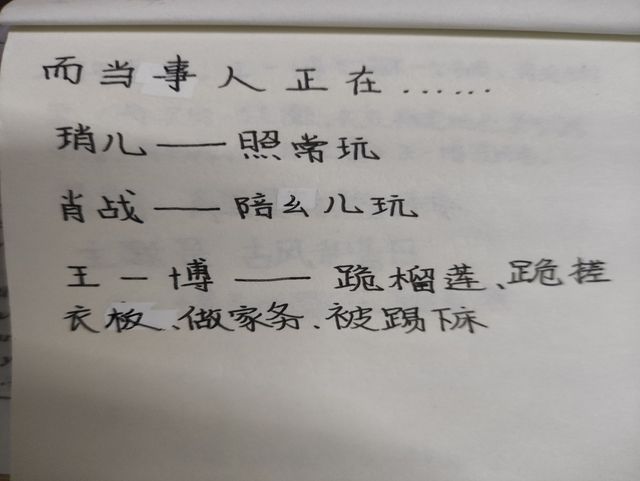 而当事人正在……
琑儿——照常玩
肖战——陪幺儿玩
王一博——跪榴莲、跪搓
衣板、做家务、被踢下床